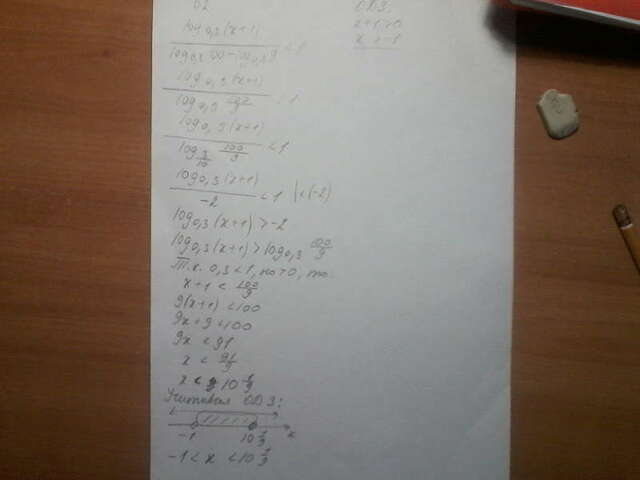 ODЗ:
x+1>0
x>-1
log0,3(x+1)
log0,3 100-log0,3 9 <1
log0,3(x+1)
log0,3 100/9 <1
log0,3(x+1)
log3/10 100/9 <1
log0,3(x+1)
-2 <1 |×(-2)
log0,3(x+1)>-2
log0,3(x+1)>log0,3 100/9
Т.к. 0,3<1, но >0, то
x+1<100/9
9(x+1)<100
9x+9<100
9x<91
x<91/9
x<10 1/9
Учитывая ODЗ:
-1 10 1/9 x
-1<x<10 1/9